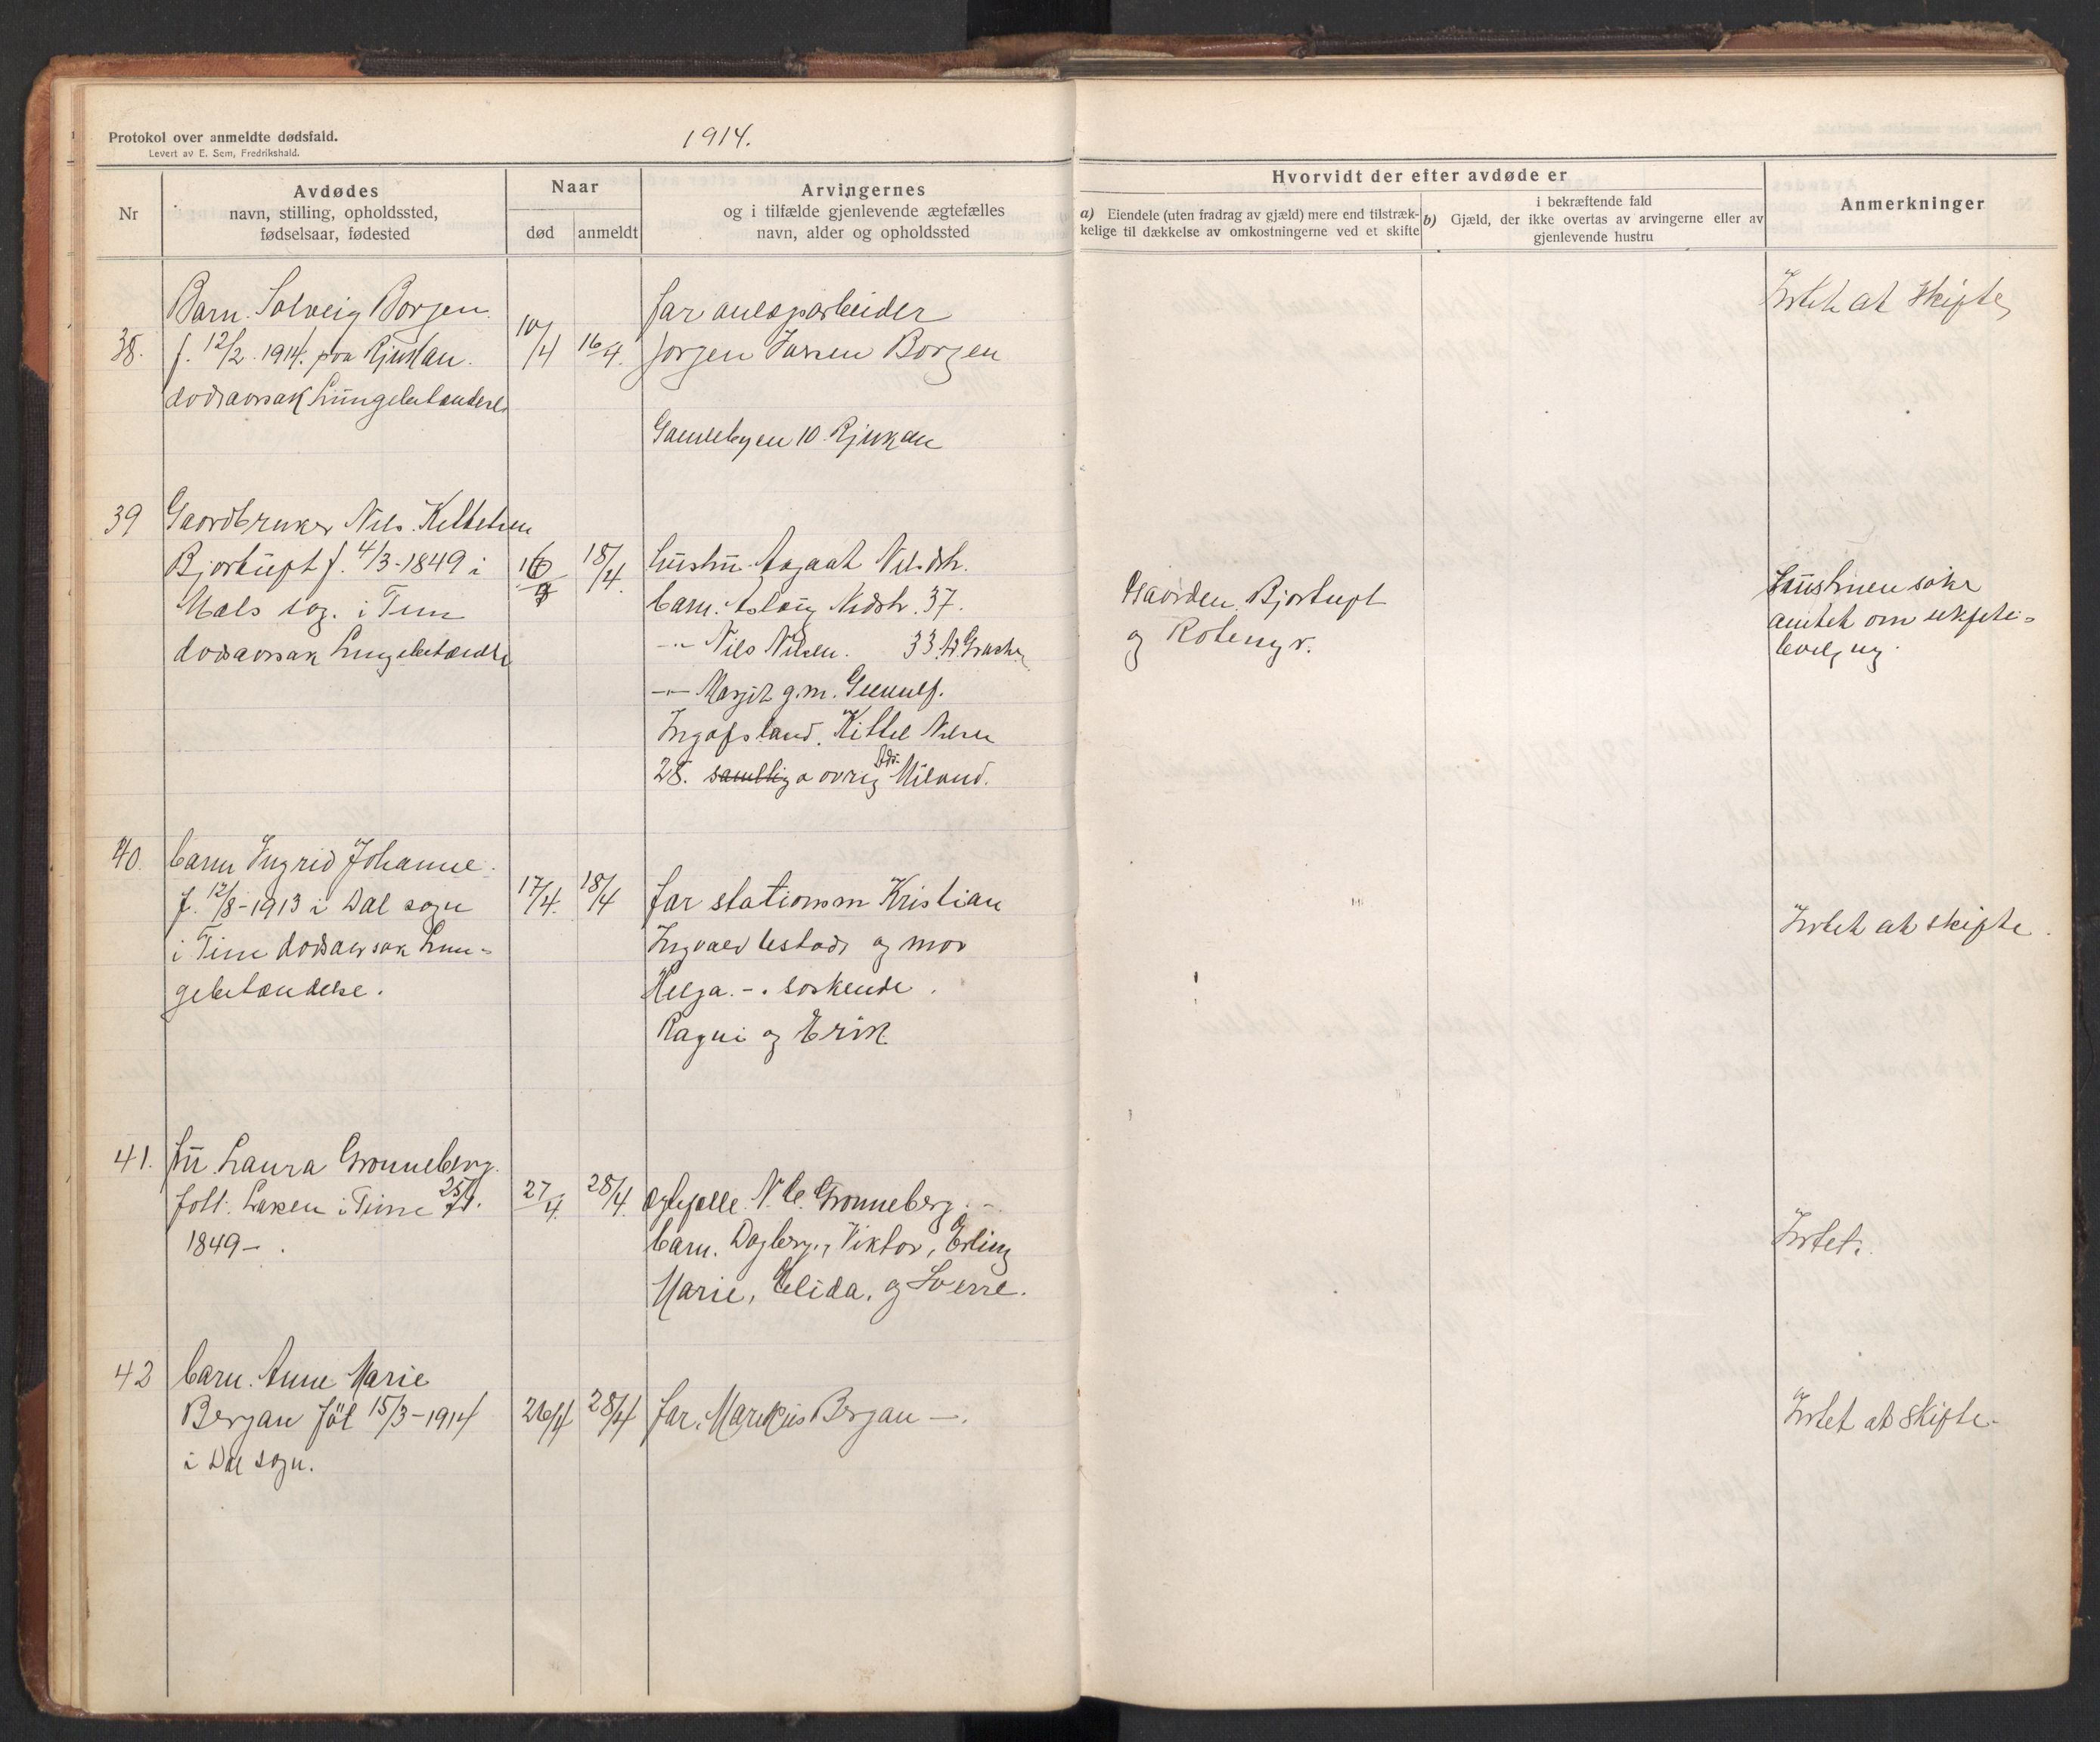 Protokol over anmeldte dødsfald.
Levert av E. Sem, Fredrikshald.
1914.
Nr
Avdødes
navn, stilling, opholdssted,
fødselsaar, fødested
Naar
død
anmeldt
Arvingernes
og i tilfælde gjenlevende ægtefælles
navn, alder og opholdssted
Hvorvidt der efter avdøde er
a) Eiendele (uten fradrag av gjæld) mere end tilstræk-
kelige til dækkelse av omkostningerne ved et skifte
i bekræftende fald
b) Gjæld, der ikke overtas av arvingerne eller av
gjenlevende hustru
Anmerkninger
38.
Barn. Solveig Borgen
f. 12/2. 1914. paa Rjukan.
dødsaarsak Lungebetændelse
10/4
16/4.
far anlægsarbeider
Jørgen Jansen Borgen
Gamlebyen 10. Rjukan
Intet at skifte
39
Gaardbruker Nils Kittelsen
Bjørtuft f. 4/3-1849 i
Mæls sog. i Tinn
dødsaarsak Lungebetændelse
16
18/4.
hustru Aagaat Nilsdtr.
barn. Aslaug Nilsdtr. 37.
-"- Nils Nilsen. 33.
-"- Margit g.m. Gunnulf.
Ingolfsland. Kittel Nilsen
28. samtlige øvrig Adr. Miland.
Gaarden Bjørtuft
og Roteng v.
Hustruen søker
amtet om uskifte-
bevilg ng.
40.
barn Ingrid Johanne
f. 12/8-1913 i Dal sogn
i Tinn dødsaarsak Lun-
gebetændelse.
17/4.
18/4
far stationsm Kristian
Ingvald Ustad og mor
Helga. -. søskende.
Ragni og Erik
Intet at skifte.
41.
fru Laura Grønneberg.
født. Larsen i Tinn 25/1.
1849-.
27/4.
28/4.
ægtefælle. N. C. Grønneberg. -
barn. Dagberg., Viktor, Erling
Marie, Elida, og Sverre.
Intet.
42
barn. Anne Marie
Bergan føt 15/3-1914
i Dal sogn.
26/4
28/4
far. Markus Bergan -.
Intet at skifte.